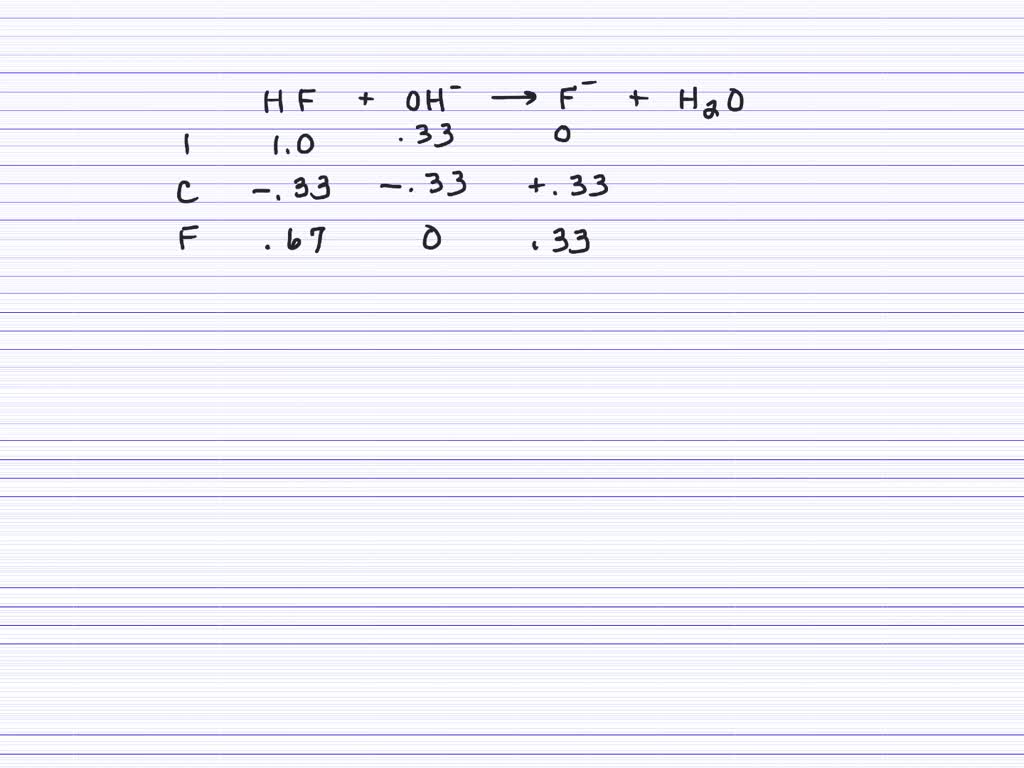 HF + OH⁻ → F⁻ + H₂O
I 1.0 .33 0
C -.33 -.33 +.33
F .67 0 .33